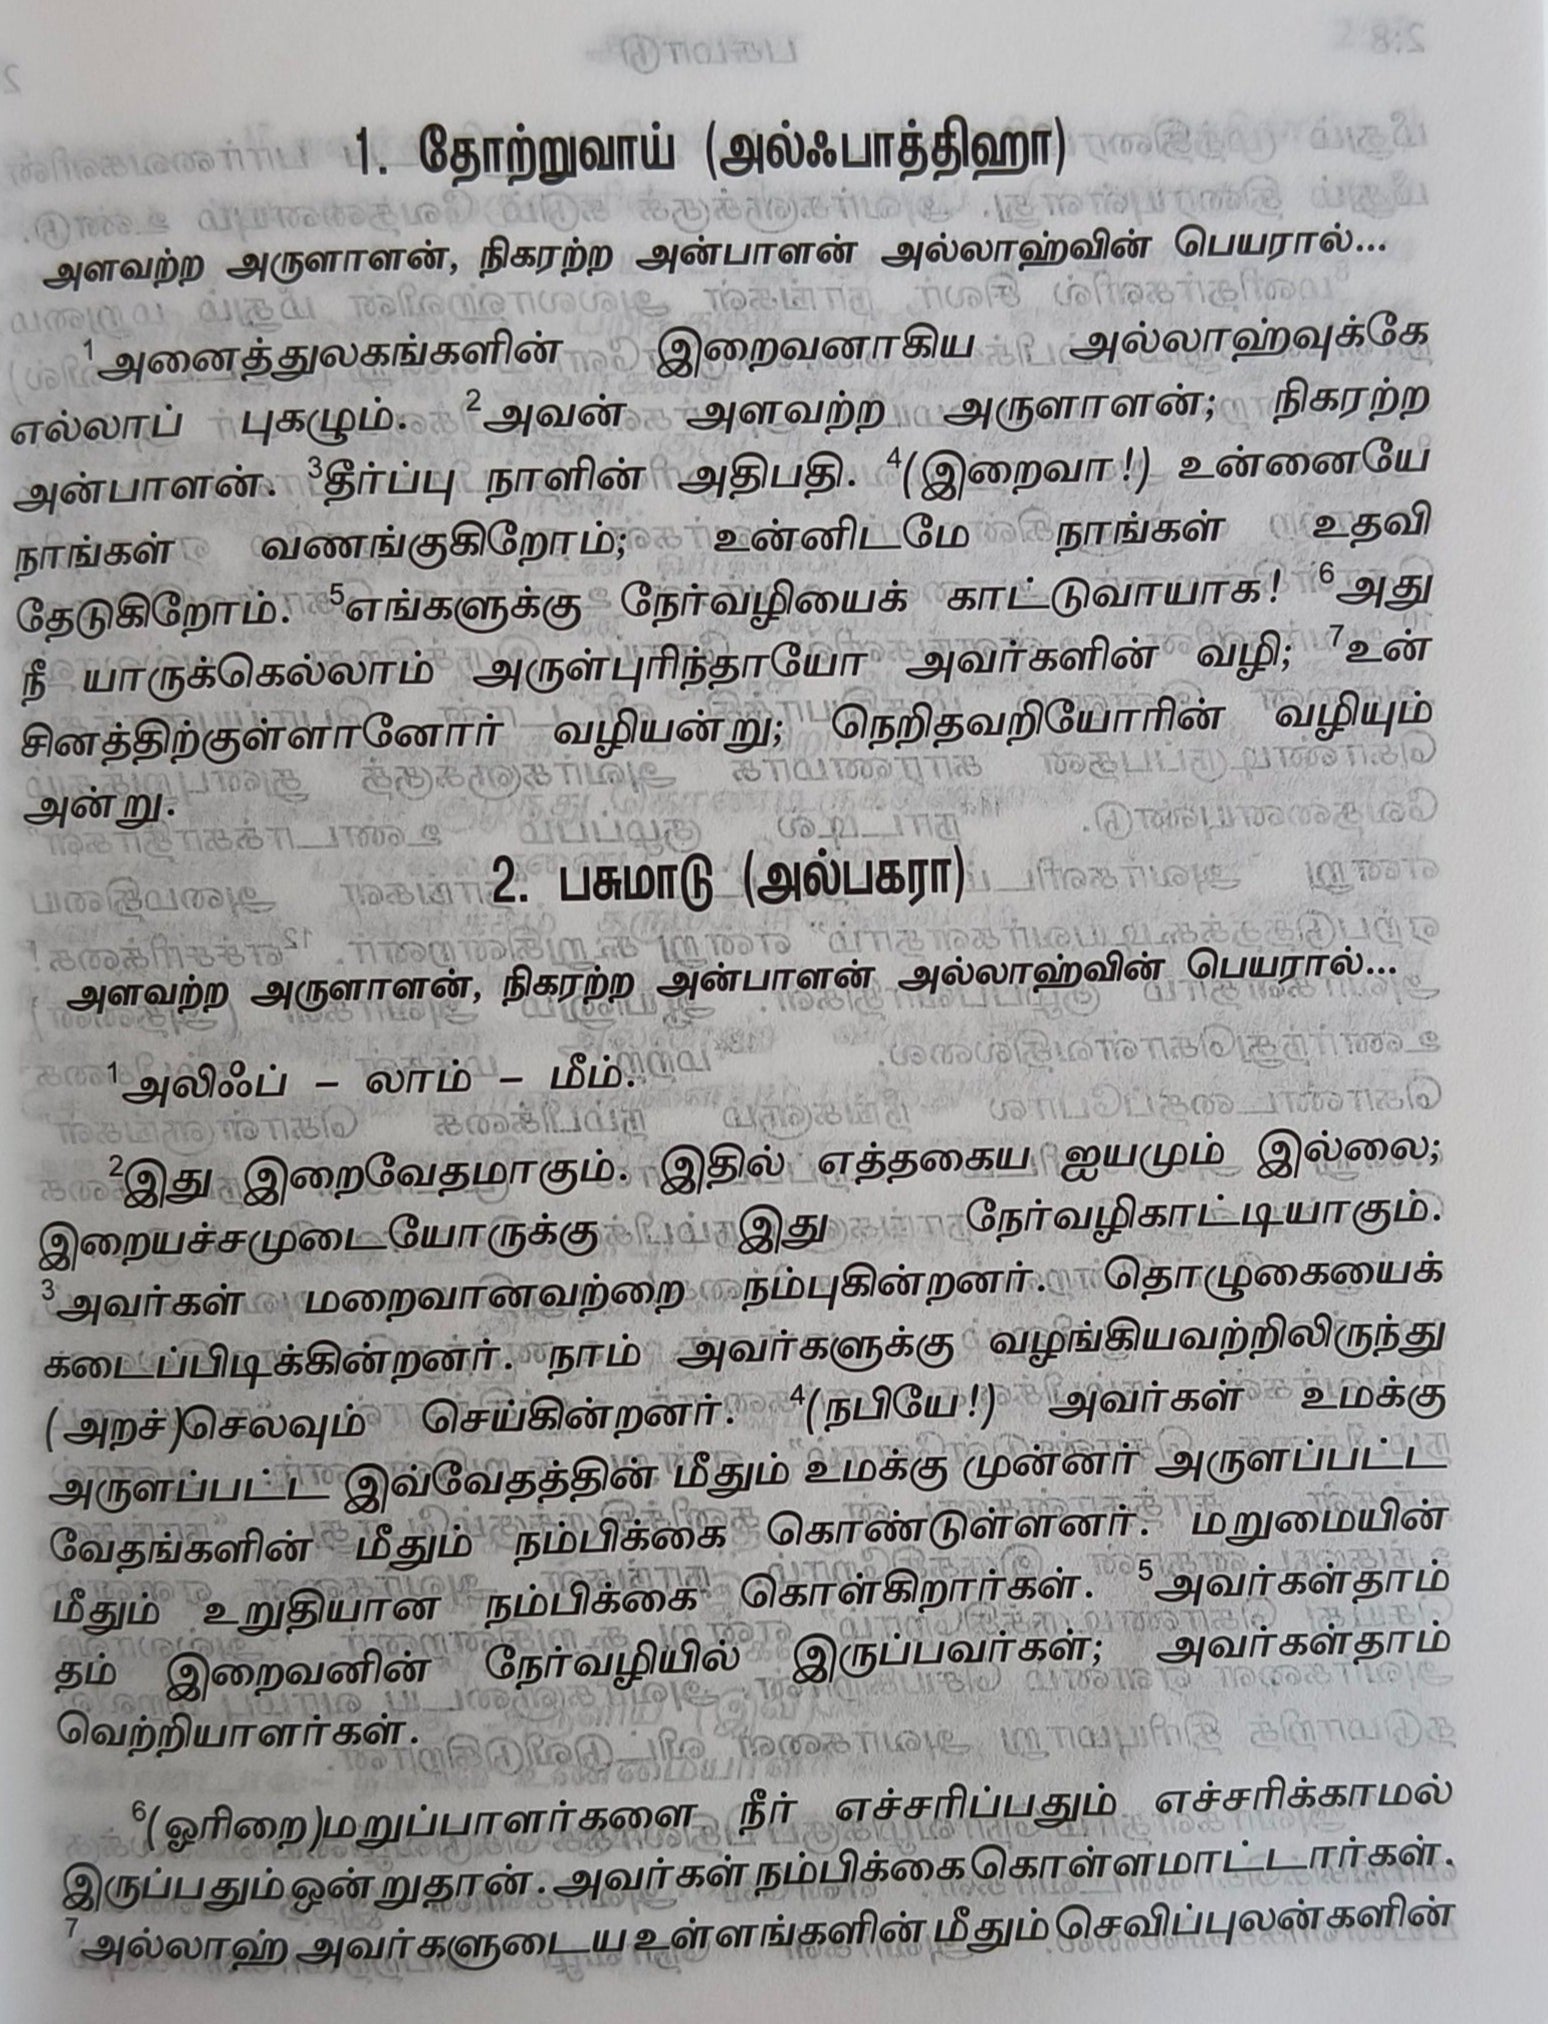 1. தோற்றுவாய் (அல்ஃபாத்திஹா)
அளவற்ற அருளாளன், நிகரற்ற அன்பாளன் அல்லாஹ்வின் பெயரால்...
¹அனைத்துலகங்களின் இறைவனாகிய அல்லாஹ்வுக்கே
எல்லாப் புகழும். ²அவன் அளவற்ற அருளாளன்; நிகரற்ற
அன்பாளன். ³தீர்ப்பு நாளின் அதிபதி. ⁴(இறைவா!) உன்னையே
நாங்கள் வணங்குகிறோம்; உன்னிடமே நாங்கள் உதவி
தேடுகிறோம். ⁵எங்களுக்கு நேர்வழியைக் காட்டுவாயாக! ⁶அது
நீ யாருக்கெல்லாம் அருள்புரிந்தாயோ அவர்களின் வழி; ⁷உன்
சினத்திற்குள்ளானோர் வழியன்று; நெறிதவறியோரின் வழியும்
அன்று.
2. பசுமாடு (அல்பகரா)
அளவற்ற அருளாளன், நிகரற்ற அன்பாளன் அல்லாஹ்வின் பெயரால்...
¹அலிஃப் – லாம் – மீம்.
²இது இறைவேதமாகும். இதில் எத்தகைய ஐயமும் இல்லை;
இறையச்சமுடையோருக்கு இது நேர்வழிகாட்டியாகும்.
³அவர்கள் மறைவானவற்றை நம்புகின்றனர். தொழுகையைக்
கடைப்பிடிக்கின்றனர். நாம் அவர்களுக்கு வழங்கியவற்றிலிருந்து
(அறச்)செலவும் செய்கின்றனர். ⁴(நபியே!) அவர்கள் உமக்கு
அருளப்பட்ட இவ்வேதத்தின் மீதும் உமக்கு முன்னர் அருளப்பட்ட
வேதங்களின் மீதும் நம்பிக்கை கொண்டுள்ளனர். மறுமையின்
மீதும் உறுதியான நம்பிக்கை கொள்கிறார்கள். ⁵அவர்கள்தாம்
தம் இறைவனின் நேர்வழியில் இருப்பவர்கள்; அவர்கள்தாம்
வெற்றியாளர்கள்.
⁶(ஓரிறை)மறுப்பாளர்களை நீர் எச்சரிப்பதும் எச்சரிக்காமல்
இருப்பதும் ஒன்றுதான். அவர்கள் நம்பிக்கை கொள்ளமாட்டார்கள்.
⁷அல்லாஹ் அவர்களுடைய உள்ளங்களின் மீதும் செவிப்புலன்களின்